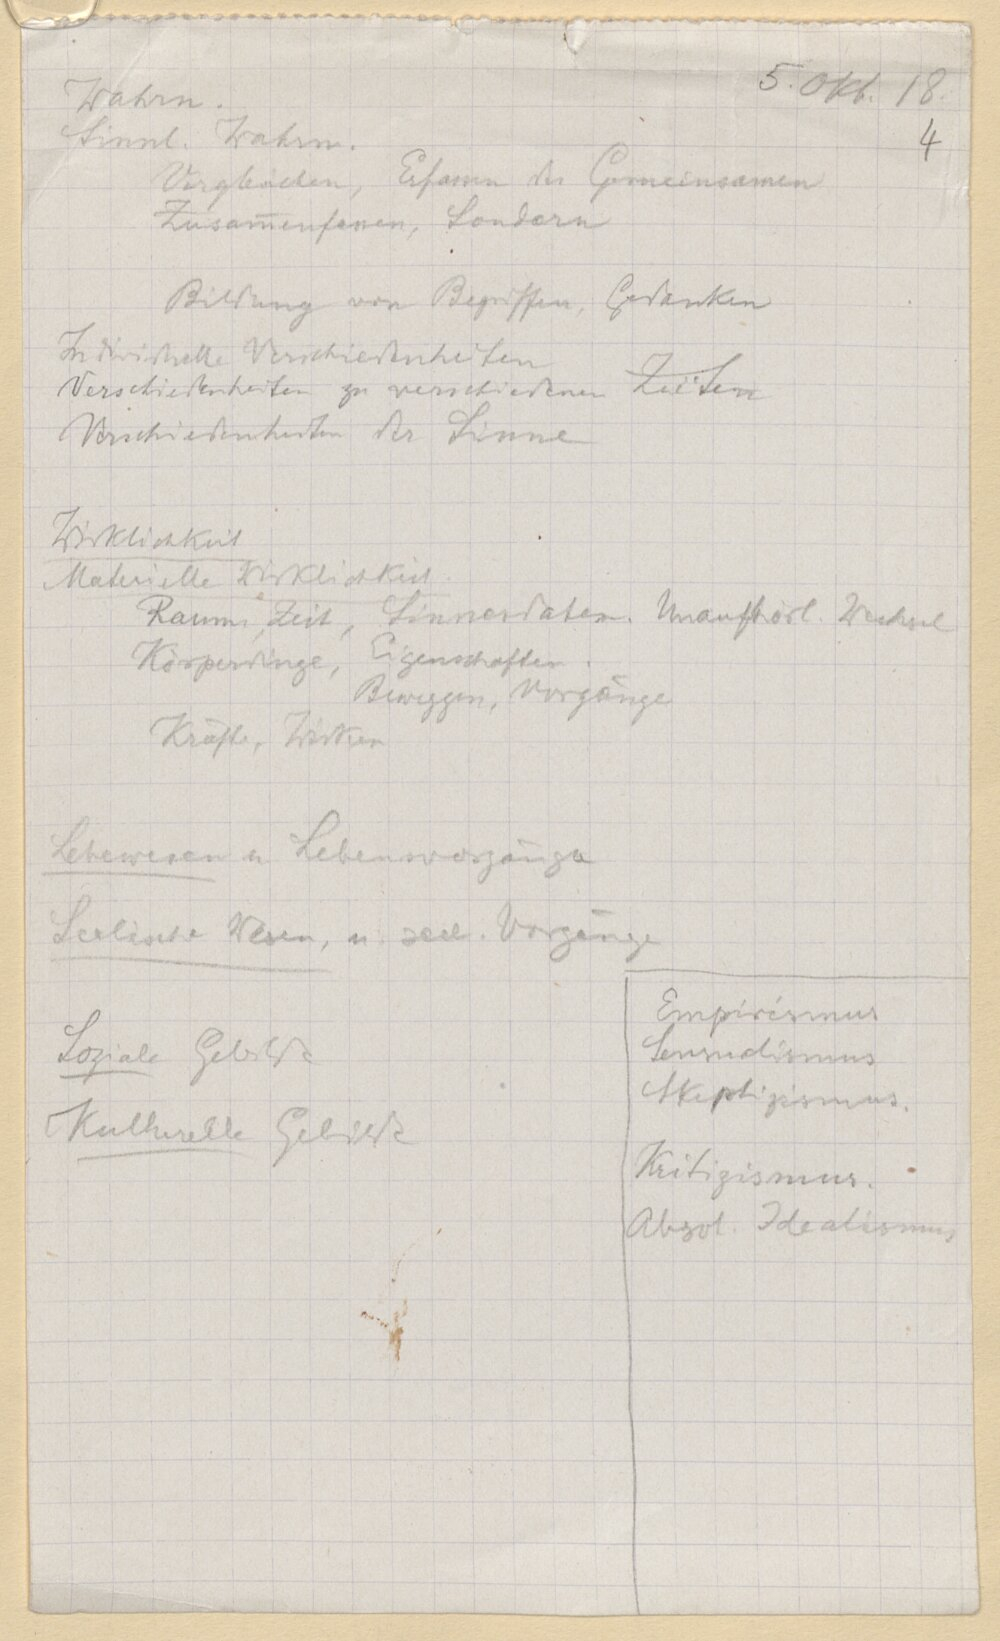 5. Okt. 18.
4
Wahrn.
Sinnl. Wahrn.
Vergleichen, Erfassen des Gemeinsamen
Zusam̅enfassen, Sondern
Bildung von Begriffen, Gedanken
Individuelle Verschiedenheiten
Verschiedenheiten zu verschiedenen Zeiten
Verschiedenheiten der Sinne
Wirklichkeit
Materielle Wirklichkeit.
Raum, Zeit, Sinnesdaten. Unaufhörl. Wechsel
Körperdinge, Eigenschaften.
Beweggen, Vorgänge
Kräfte, Wirken
Lebewesen u. Lebensvorgänge
Seelische Wesen, u. seel. Vorgänge
Soziale Gebilde
Kulturelle Gebilde
Empirismus
Sensualismus
Skeptizismus.
Kritizismus.
Absol. Idealismus